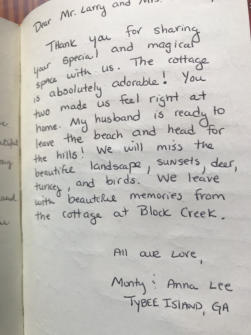 Dear Mr. Larry and Mrs.
Thank you for sharing
your special and magical
space with us. The cottage
is absolutely adorable! You
two made us feel right at
home. My husband is ready to
leave the beach and head for
the hills! We will miss the
beautiful landscape, sunsets, deer,
turkey, and birds. We leave
with beautiful memories from
the cottage at Block Creek.
All our Love,
Monty & Anna Lee
TYBEE ISLAND, GA